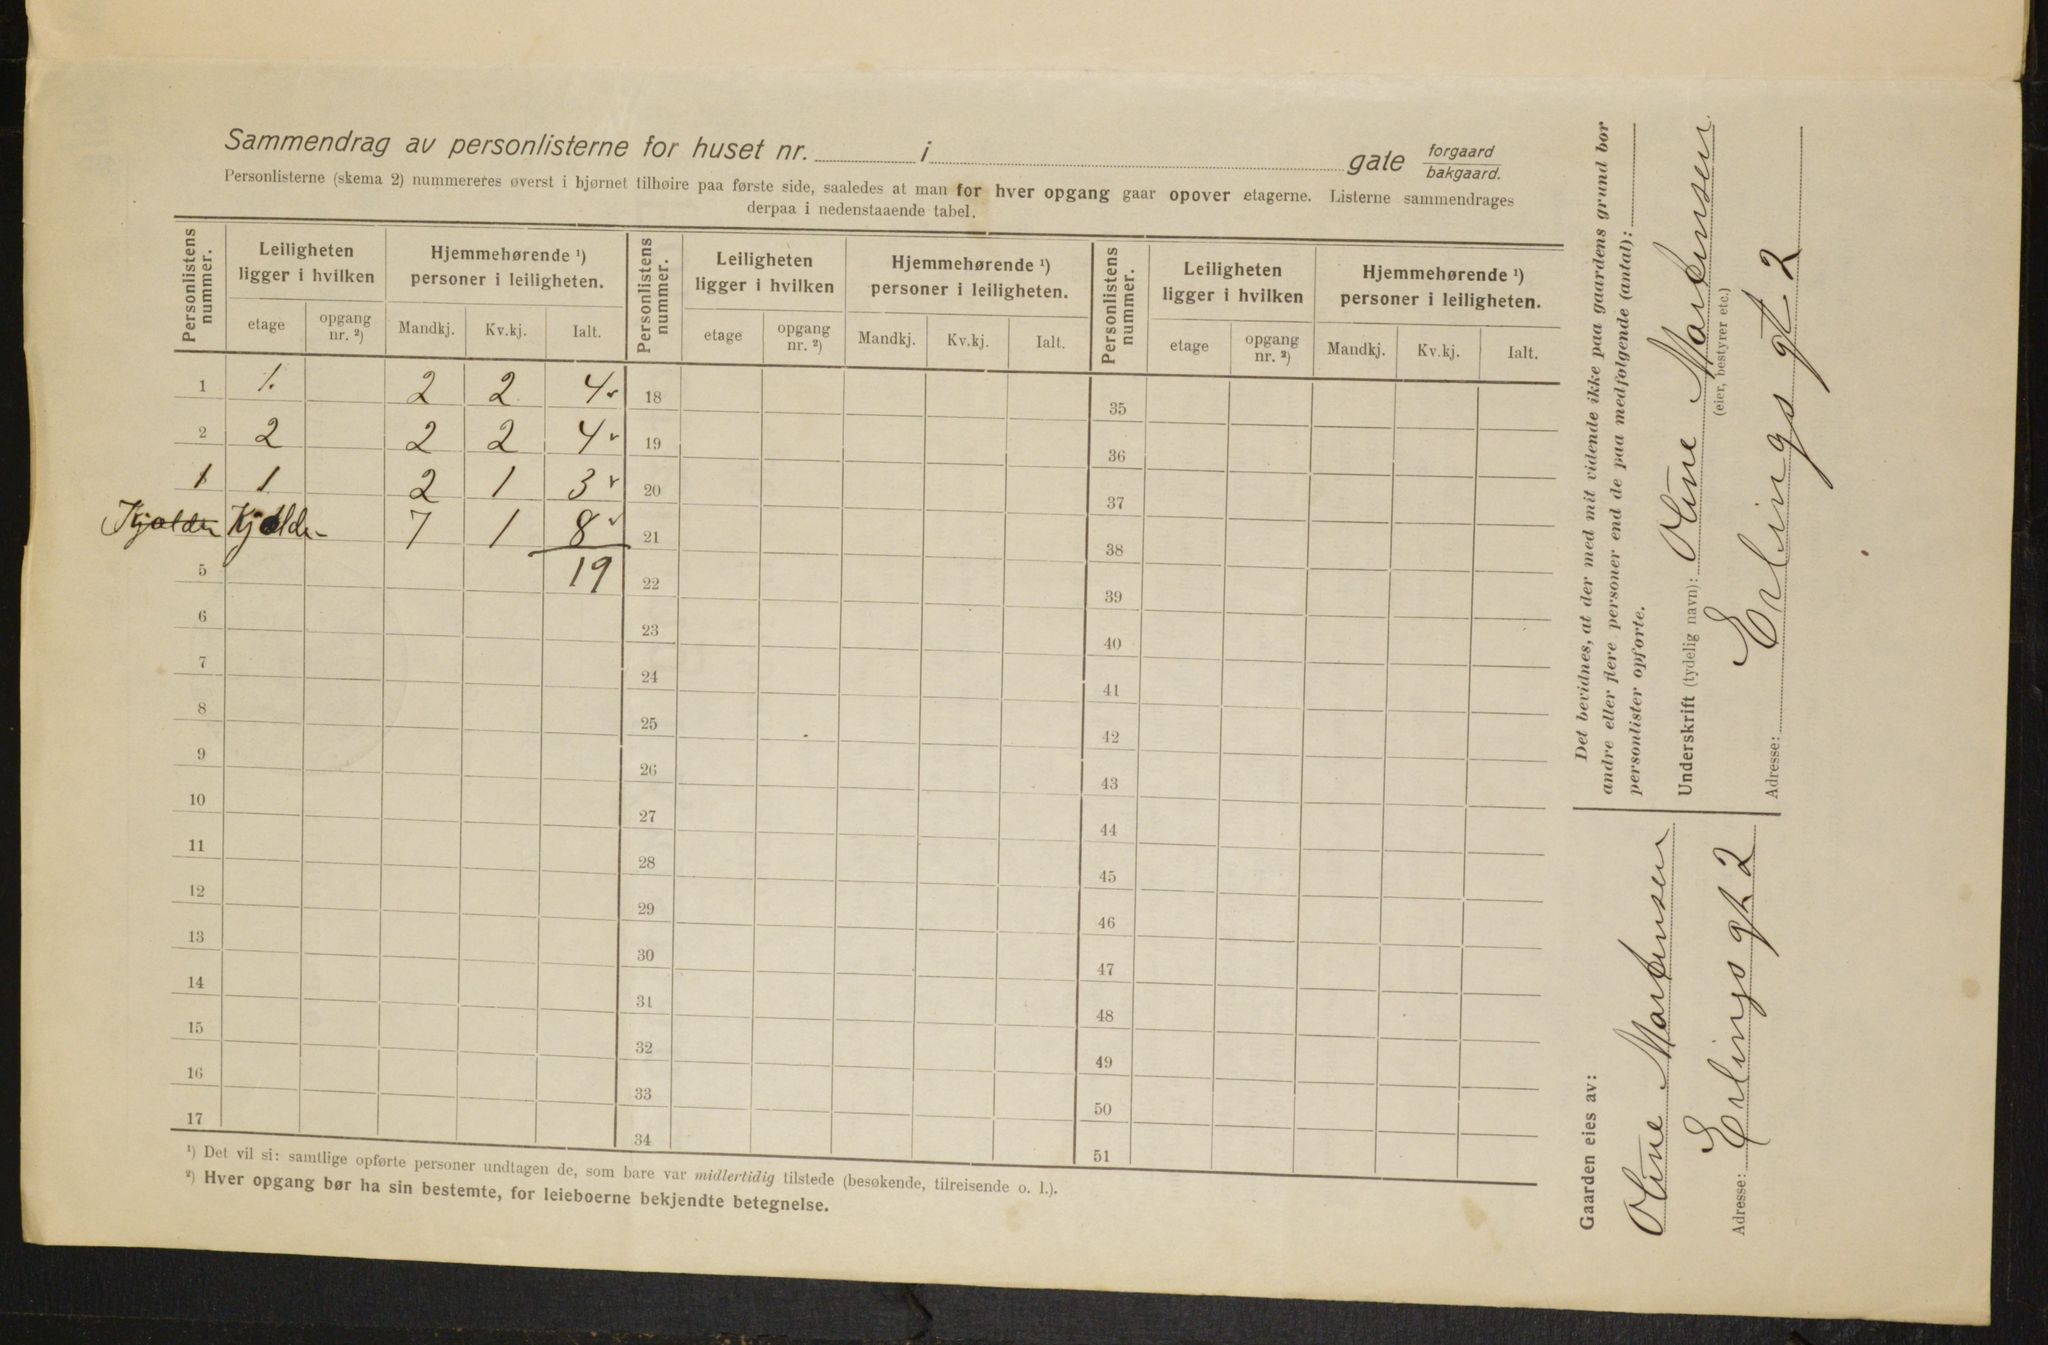 Sammendrag av personlisterne for huset nr. i gate forgaard bakgaard.
Personlisterne (skema 2) nummereres øverst i hjørnet tilhøire paa første side, saaledes at man for hver opgang gaar opover etagerne. Listerne sammendrages
derpaa i nedenstaaende tabel.
Personlistens nummer. Leiligheten ligger i hvilken Hjemmehørende ¹) personer i leiligheten. Personlistens nummer. Leiligheten ligger i hvilken Hjemmehørende ¹) personer i leiligheten. Personlistens nummer. Leiligheten ligger i hvilken Hjemmehørende ¹) personer i leiligheten.
etage opgang nr. ²) Mandkj. Kv.kj. Ialt. etage opgang nr. ²) Mandkj. Kv.kj. Ialt. etage opgang nr. ²) Mandkj. Kv.kj. Ialt.
1 1. 2 2 4 18 35
2 2 2 2 4 19 36
1 1 2 1 3 20 37
Kjælder Kjælder 7 1 8 21 38
5 19 22 39
6 23 40
7 24 41
8 25 42
9 26 43
10 27 44
11 28 45
12 29 46
13 30 47
14 31 48
15 32 49
16 33 50
17 34 51
¹) Det vil si: samtlige opførte personer undtagen de, som bare var midlertidig tilstede (besøkende, tilreisende o. l.).
²) Hver opgang bør ha sin bestemte, for leieboerne bekjendte betegnelse.
Det bevidnes, at der med mit vidende ikke paa gaardens grund bor
andre eller flere personer end de paa medfølgende (antal):
personlister opførte.
Underskrift (tydelig navn): Oline Martinsen
(eier, bestyrer etc.)
Adresse: Erlings gt 2
Gaarden eies av:
Oline Martinsen
Adresse: Erlings gt 2